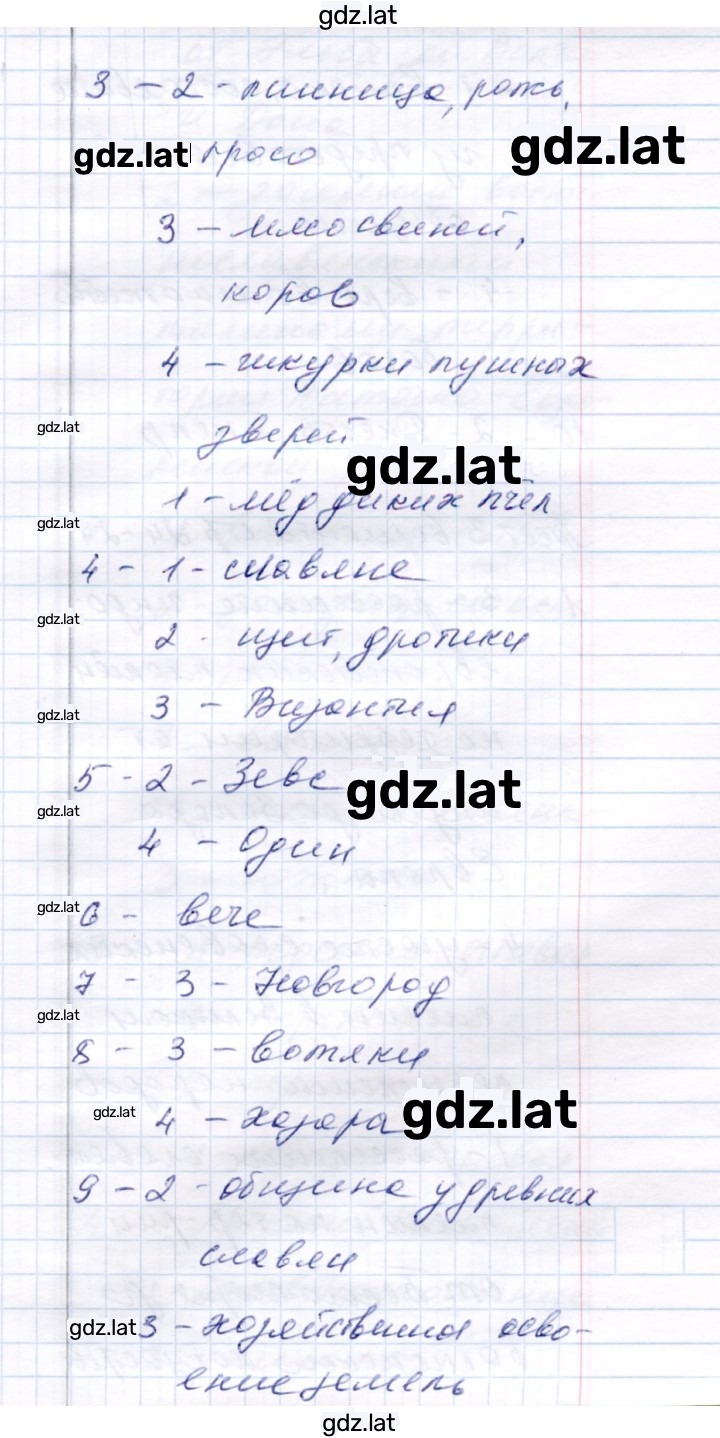 gdz.lat
3 – 2 - пшеница, рожь,
gdz.lat просо gdz.lat
3 – мясо свиней,
gdz.lat
коров
4 – шкурки пушных
gdz.lat зверей gdz.lat
1 – мёд диких пчёл
gdz.lat
4 – 1 - славяне
gdz.lat
2 - щит, дротики
3 – Византия
gdz.lat
5 - 2 - Зевс gdz.lat
gdz.lat
4 – Один
gdz.lat 6 - вече
7 - 3 - Новгород
gdz.lat
8 - 3 – вотяки
gdz.lat 4 – хазара gdz.lat
9 – 2 - община у древних
славян
gdz.lat 3 – хозяйственно осво-
ение земель
gdz.lat